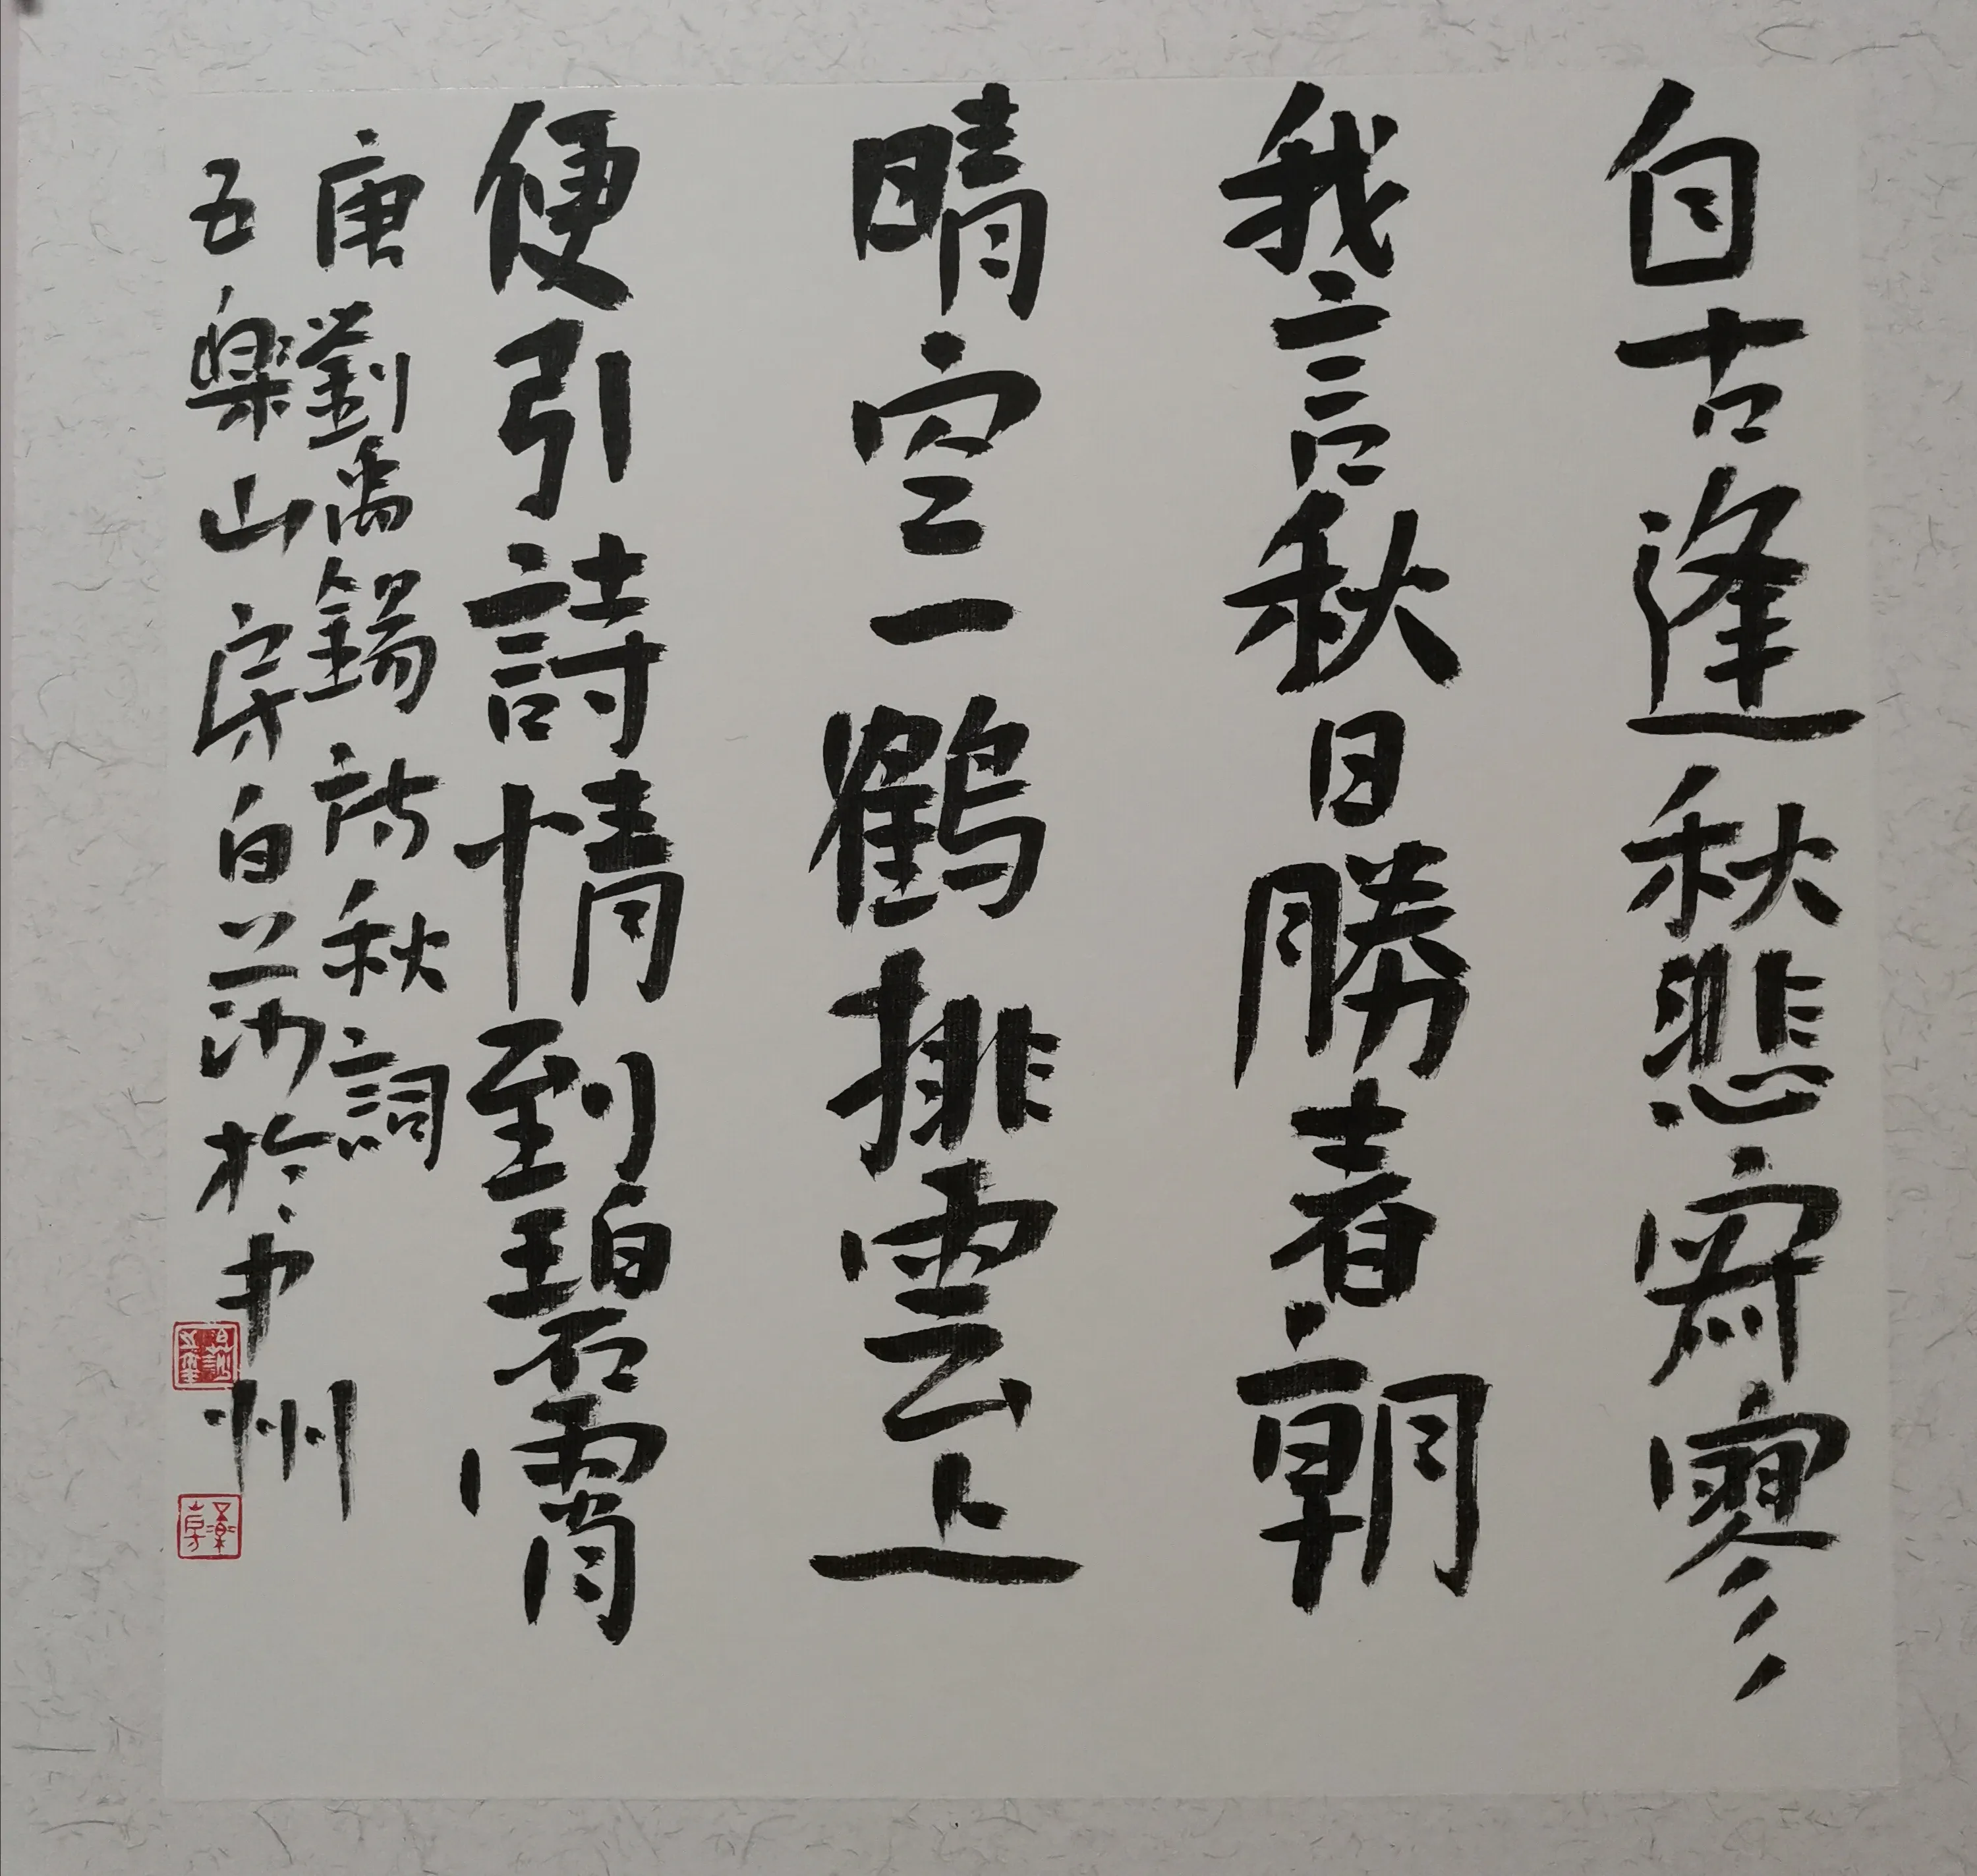 自古逢秋悲寂寥
我言秋日勝春朝
晴空一鶴排雲上
便引詩情到碧霄
唐劉禹錫詩秋詞
五樂山房白莎於中州
五樂山房